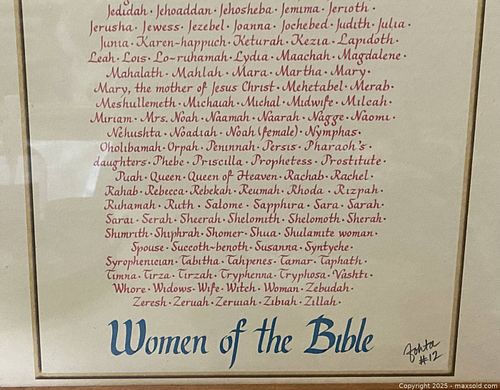 Jedidah · Jehoaddan · Jehosheba · Jemima · Jerioth ·
Jerusha · Jewess · Jezebel · Joanna · Jochebed · Judith · Julia ·
Junia · Karen-happuch · Keturah · Kezia · Lapidoth ·
Leah · Lois · Lo-ruhamah · Lydia · Maachah · Magdalene ·
Mahalath · Mahlah · Mara · Martha · Mary ·
Mary, the mother of Jesus Christ · Mehetabel · Merab ·
Meshullemeth · Michaiah · Michal · Midwife · Milcah ·
Miriam · Mrs. Noah · Naamah · Naarah · Nagge · Naomi ·
Nehushta · Noadiah · Noah (female) · Nymphas ·
Oholibamah · Orpah · Peninnah · Persis · Pharaoh's ·
daughters · Phebe · Priscilla · Prophetess · Prostitute ·
Puah · Queen · Queen of Heaven · Rachab · Rachel ·
Rahab · Rebecca · Rebekah · Reumah · Rhoda · Rizpah ·
Ruhamah · Ruth · Salome · Sapphira · Sara · Sarah ·
Sarai · Serah · Sheerah · Shelomith · Shelomoth · Sherah ·
Shimrith · Shiphrah · Shomer · Shua · Shulamite woman ·
Spouse · Succoth-benoth · Susanna · Syntyche ·
Syrophenician · Tabitha · Tahpenes · Tamar · Taphath ·
Timna · Tirza · Tirzah · Tryphenna · Tryphosa · Vashti ·
Whore · Widows · Wife · Witch · Woman · Zebudah ·
Zeresh · Zeruah · Zeruiah · Zibiah · Zillah ·
Women of the Bible
#12
Copyright 2025 - maxsold.com